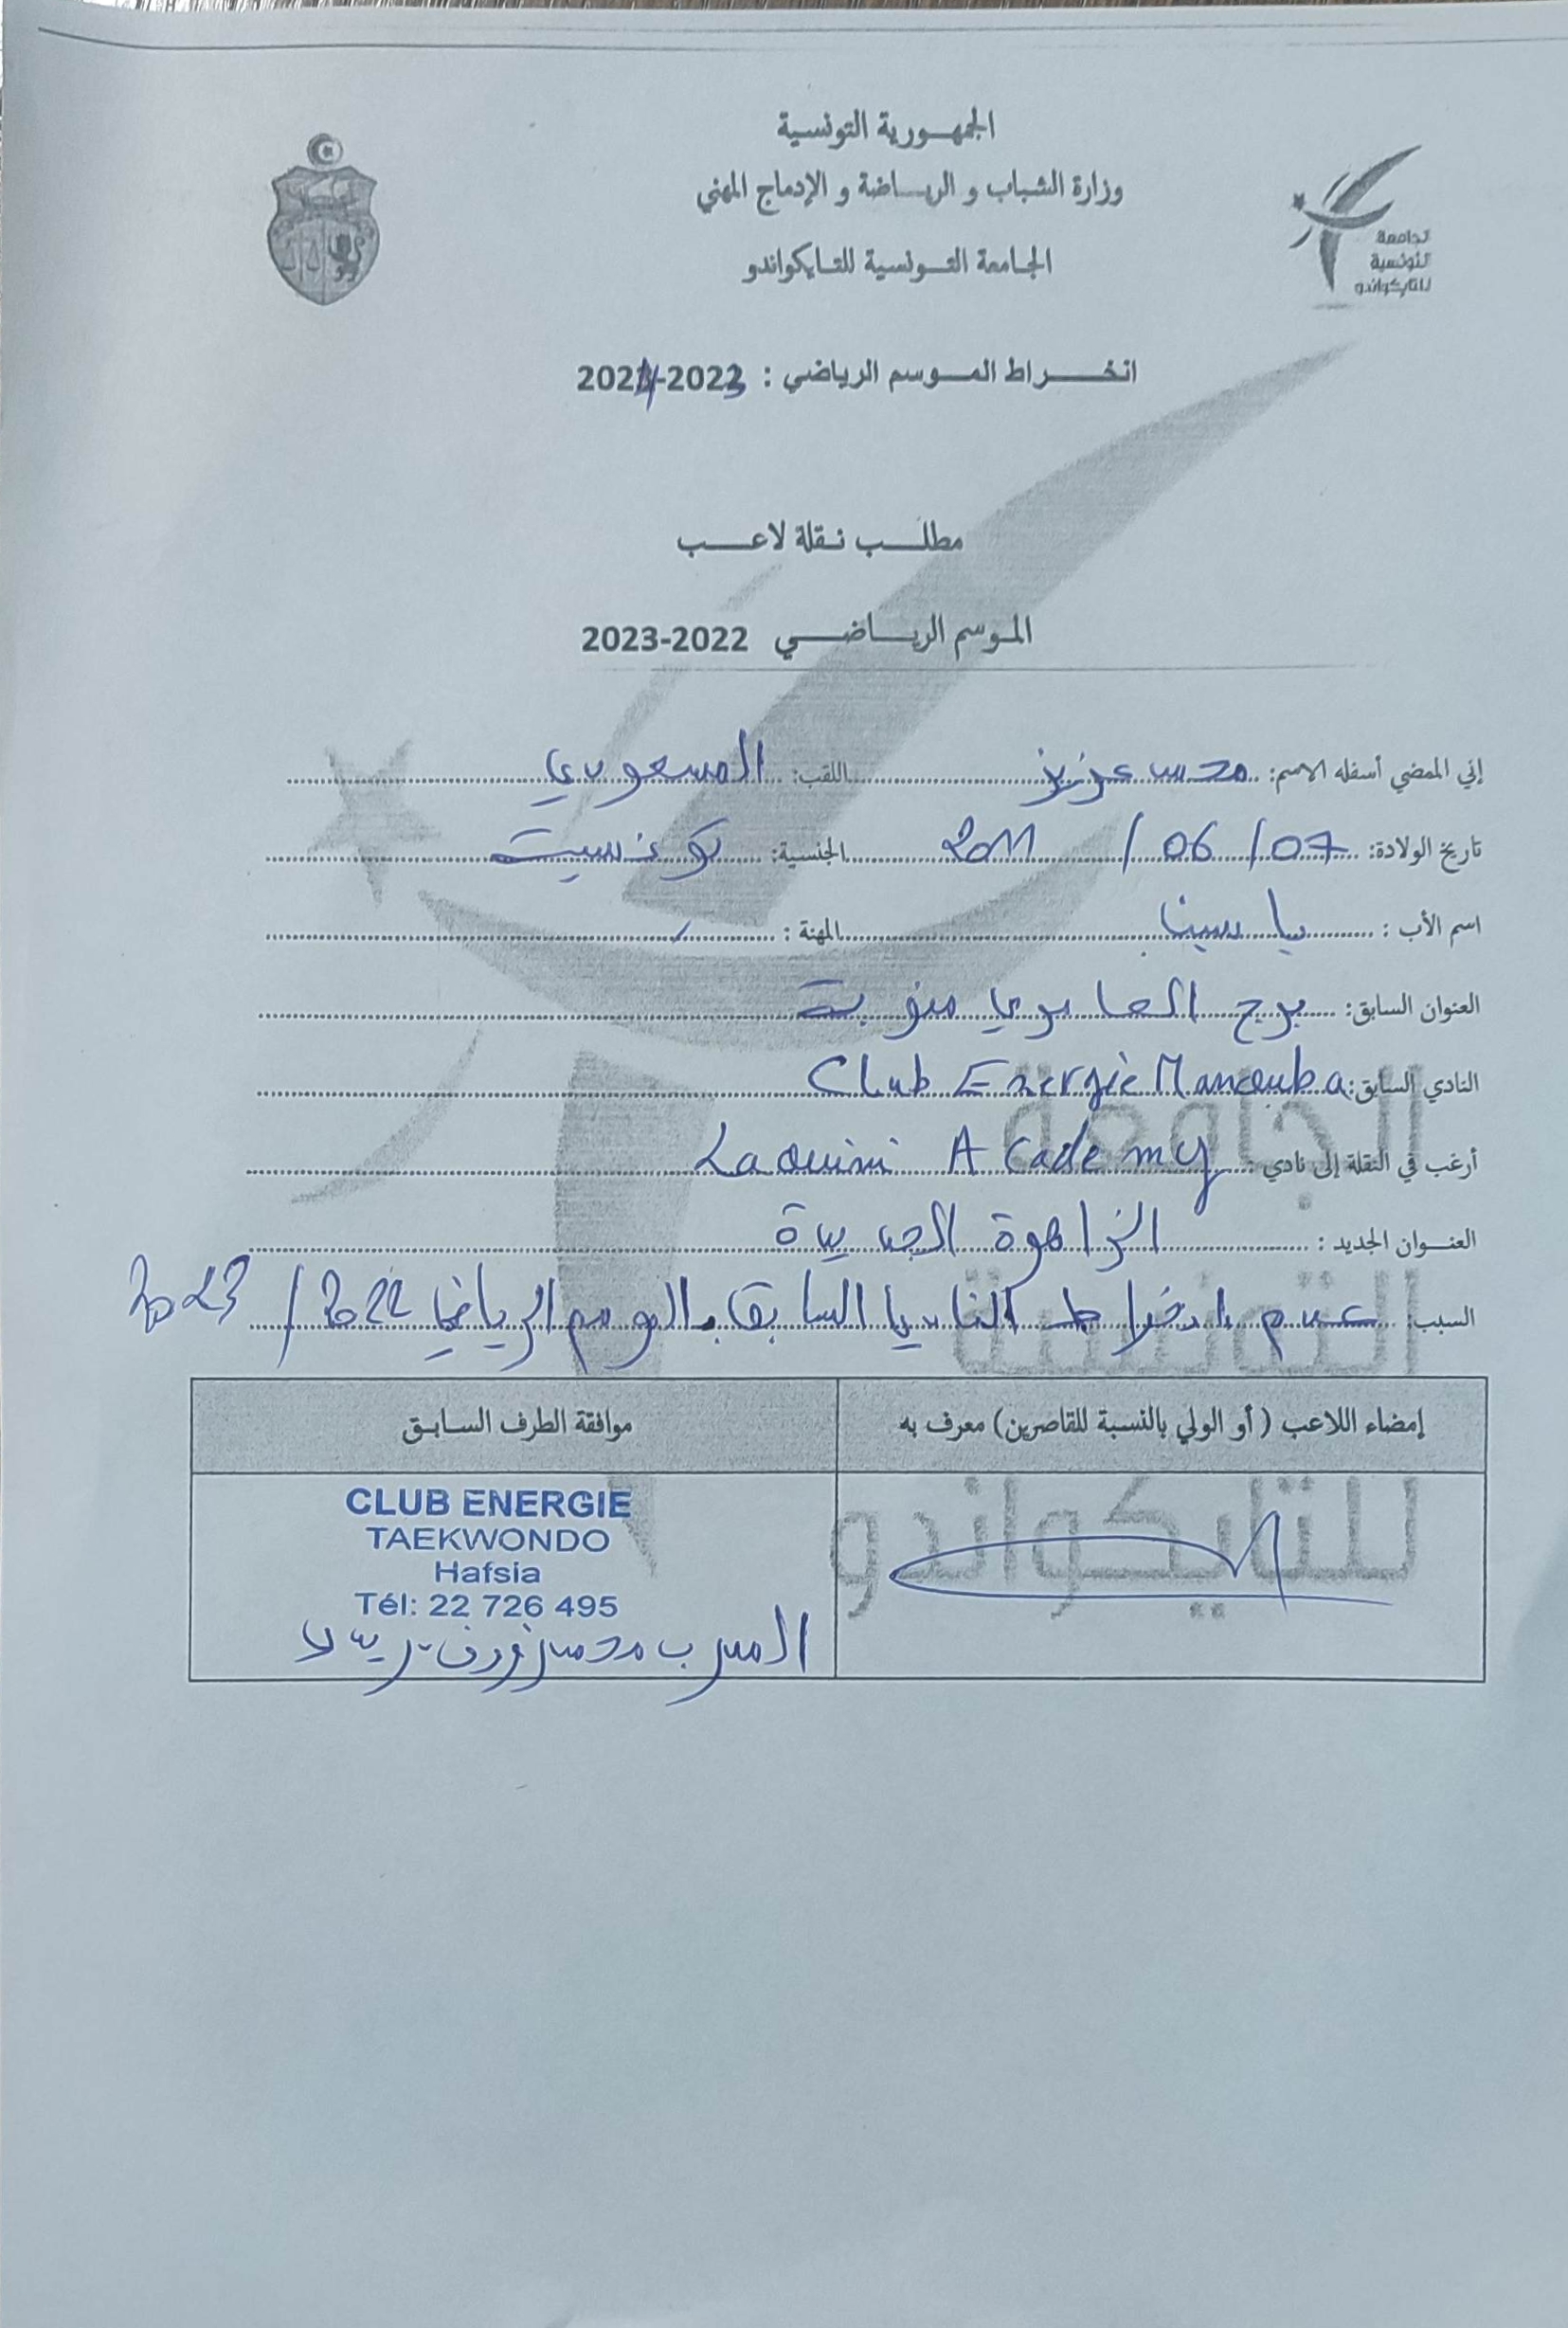 الجمهورية التونسية
وزارة الشباب و الرياضة و الإدماج المهني
الجامعة التونسية للتايكواندو
الجامعة
التونسية
للتايكواندو
انخراط الموسم الرياضي : 2022-2023
مطلب نقلة لاعب
الموسم الرياضي 2022-2023
إني الممضي أسفله الاسم: محمد عزيز اللقب: المسعودي
تاريخ الولادة: 07/06/2011 الجنسية: تونسية
اسم الأب : ياسين المهنة : /
العنوان السابق: برج العامري منوبة
النادي السابق: Club Energie Manouba
أرغب في النقلة إلى نادي : Laouini Academy
العنوان الجديد : الزاهرة الجديدة
السبب: عدم انخراط النادي السابق بالموسم الرياضي 2022/2023
إمضاء اللاعب ( أو الولي بالنسبة للقاصرين) معرف به
موافقة الطرف السابق
CLUB ENERGIE
TAEKWONDO
Hafsia
Tél: 22 726 495
المدرب محمد
الجامعة
التونسية
للتايكواندو